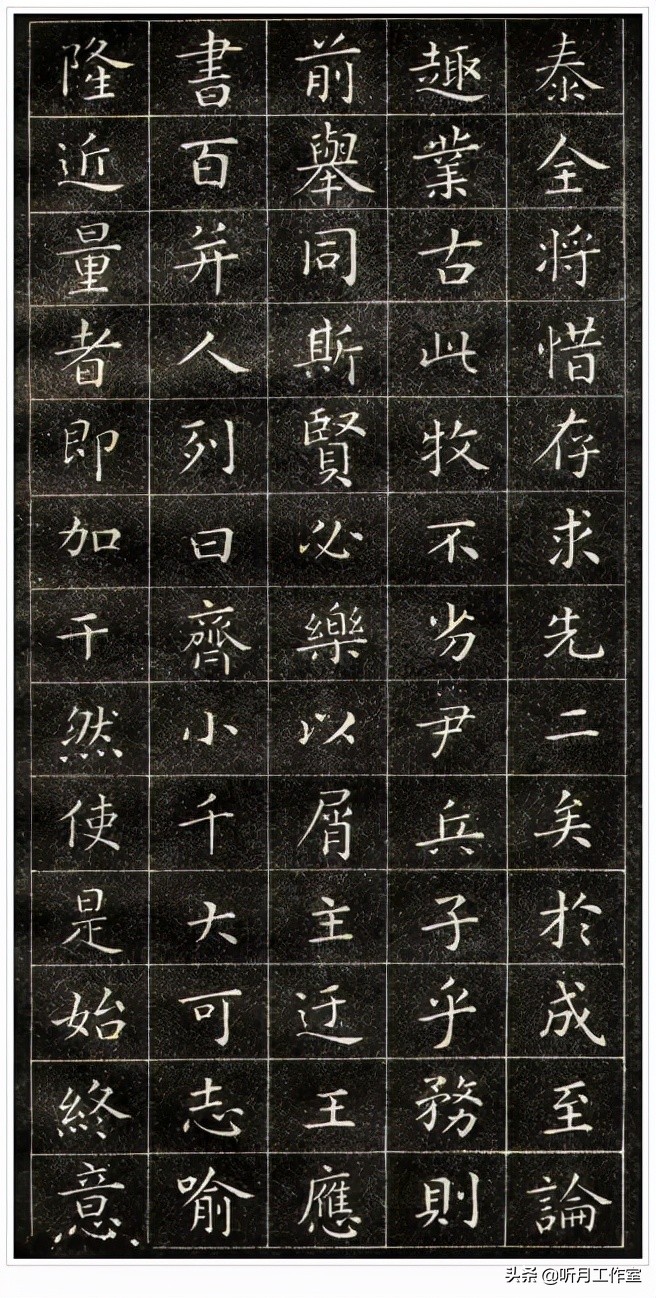 泰全将惜存求先二矣於成至論
趣業古此牧不劣尹兵子乎務則
前舉同斯賢必樂以屑主迂王應
書百并人列曰齊小千大可志喻
隆近量者即加干然使是始終意
头条 @听月工作室